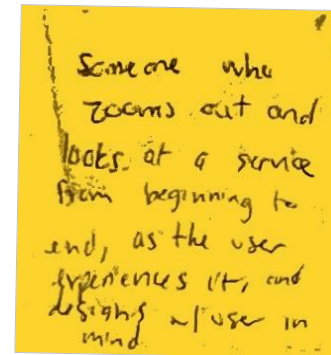 Someone who
zooms out and
looks at a service
from beginning to
end, as the user
experiences it, and
designs w/ user in
mind